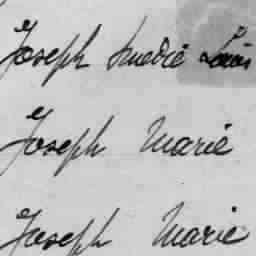 Joseph Amédié Louis
Joseph Marie
Joseph Marie